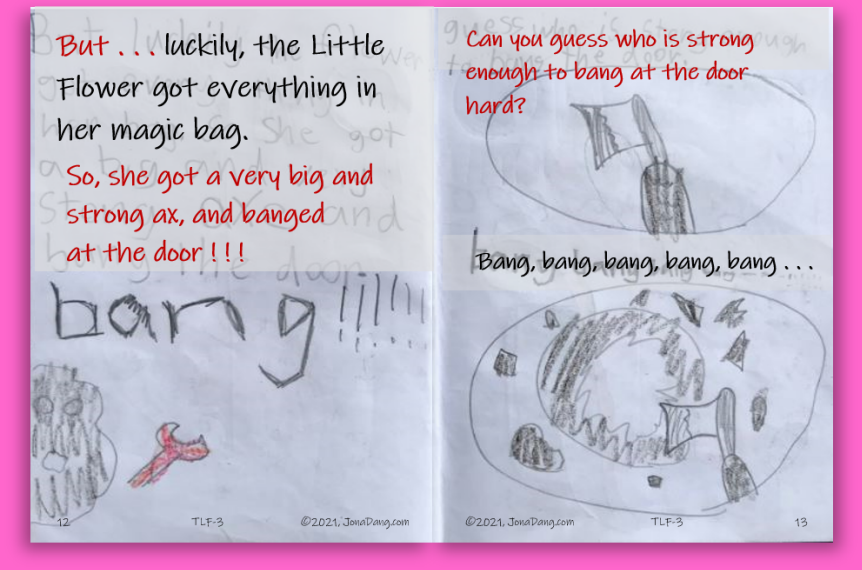 But . . . luckily, the Little
Flower got everything in
her magic bag.
So, she got a very big and
strong ax, and banged
at the door ! ! !
bang!!!!!!
12
TLF-3
©2021, JonaDang.com
Can you guess who is strong
enough to bang at the door
hard?
Bang, bang, bang, bang, bang . . .
©2021, JonaDang.com
TLF-3
13